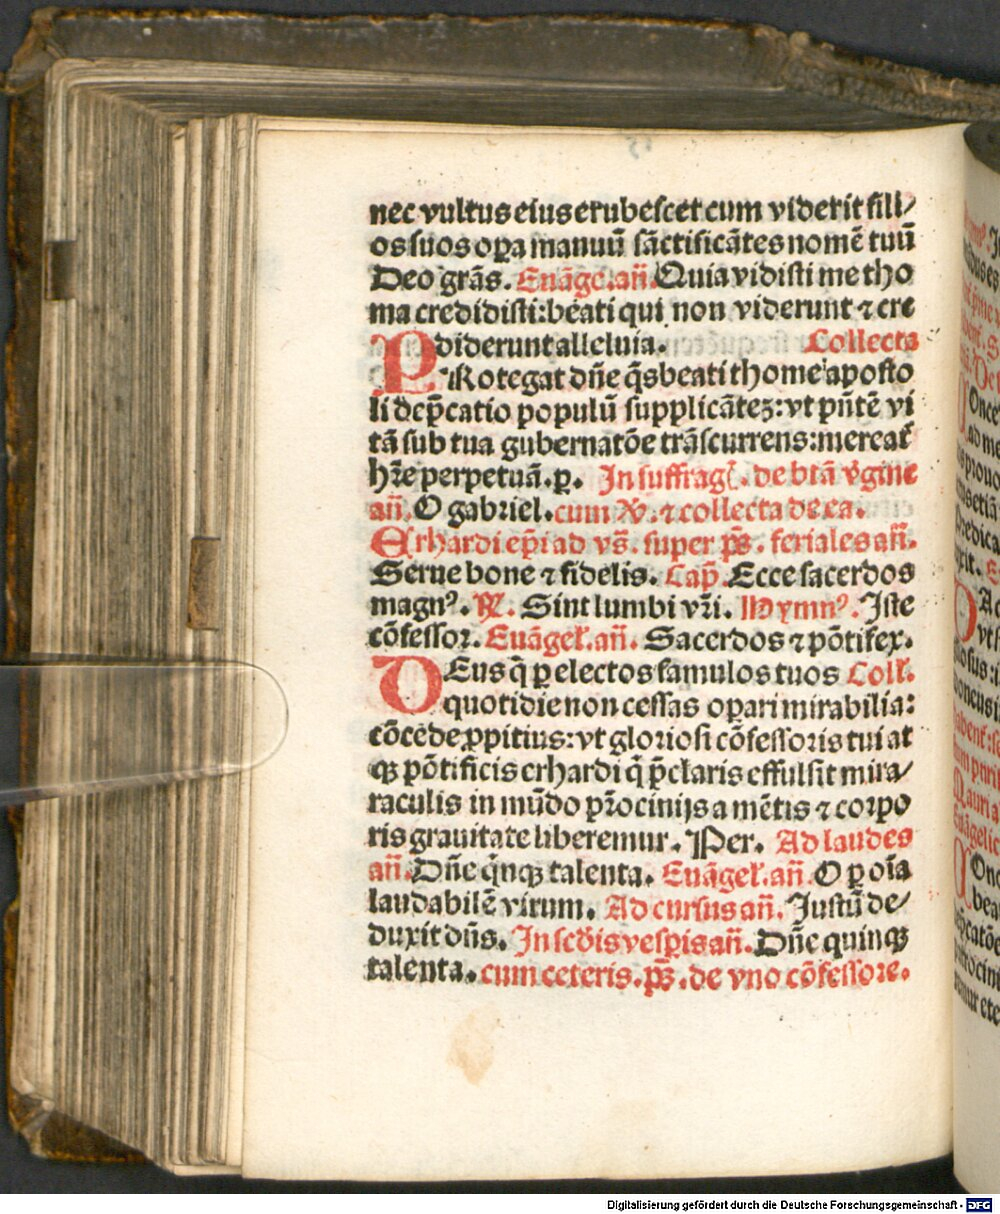 nec vultus eius erubescet cum viderit fili/
os suos oꝑa manuū sāctificātes nomē tuū
Deo grās. Euāge. añ. Quia vidisti me tho
ma credidisti: beati qui non viderunt ⁊ cre
diderunt alleluia. Collecta
PRotegat dñe q̄s beati thome aposto
li dep̄catio populū supplicātez: vt pñtē vi
tā sub tua gubernatōe trāscurrens: mereat᷑
hr̄e perpetuā. ꝑ. In suffrag᷑. de btā v̓gine
añ. O gabriel. cum V̓. ⁊ collecta de ea.
Erhardi ep̄i ad vs̄. super ps̄. feriales añ.
Serue bone ⁊ fidelis. Cap̄. Ecce sacerdos
magnꝰ. R̓. Sint lumbi vr̄i. Hymnꝰ. Iste
cōfessor. Euāgel᷑. añ. Sacerdos ⁊ pōtifex.
DEus q̄ ꝑ electos famulos tuos Coll᷑.
quotidie non cessas oꝑari mirabilia:
cōcede ꝓpitius: vt gloriosi cōfessoris tui at
qꝫ pōtificis erhardi q̄ p̄claris effulsit mira/
raculis in mūdo pr̄ocinijs a mētis ⁊ corpo
ris grauitate liberemur. Per. Ad laudes
añ. Dñe q̄nqꝫ talenta. Euāgel᷑. añ. O ꝑ oīa
laudabilē virum. Ad cursus añ. Iustū de/
duxit dñs. In scd̄is vesꝑis añ. Dñe quinqꝫ
talenta. cum ceteris. ps̄. de vno cōfessore.
Digitalisierung gefördert durch die Deutsche Forschungsgemeinschaft - DFG